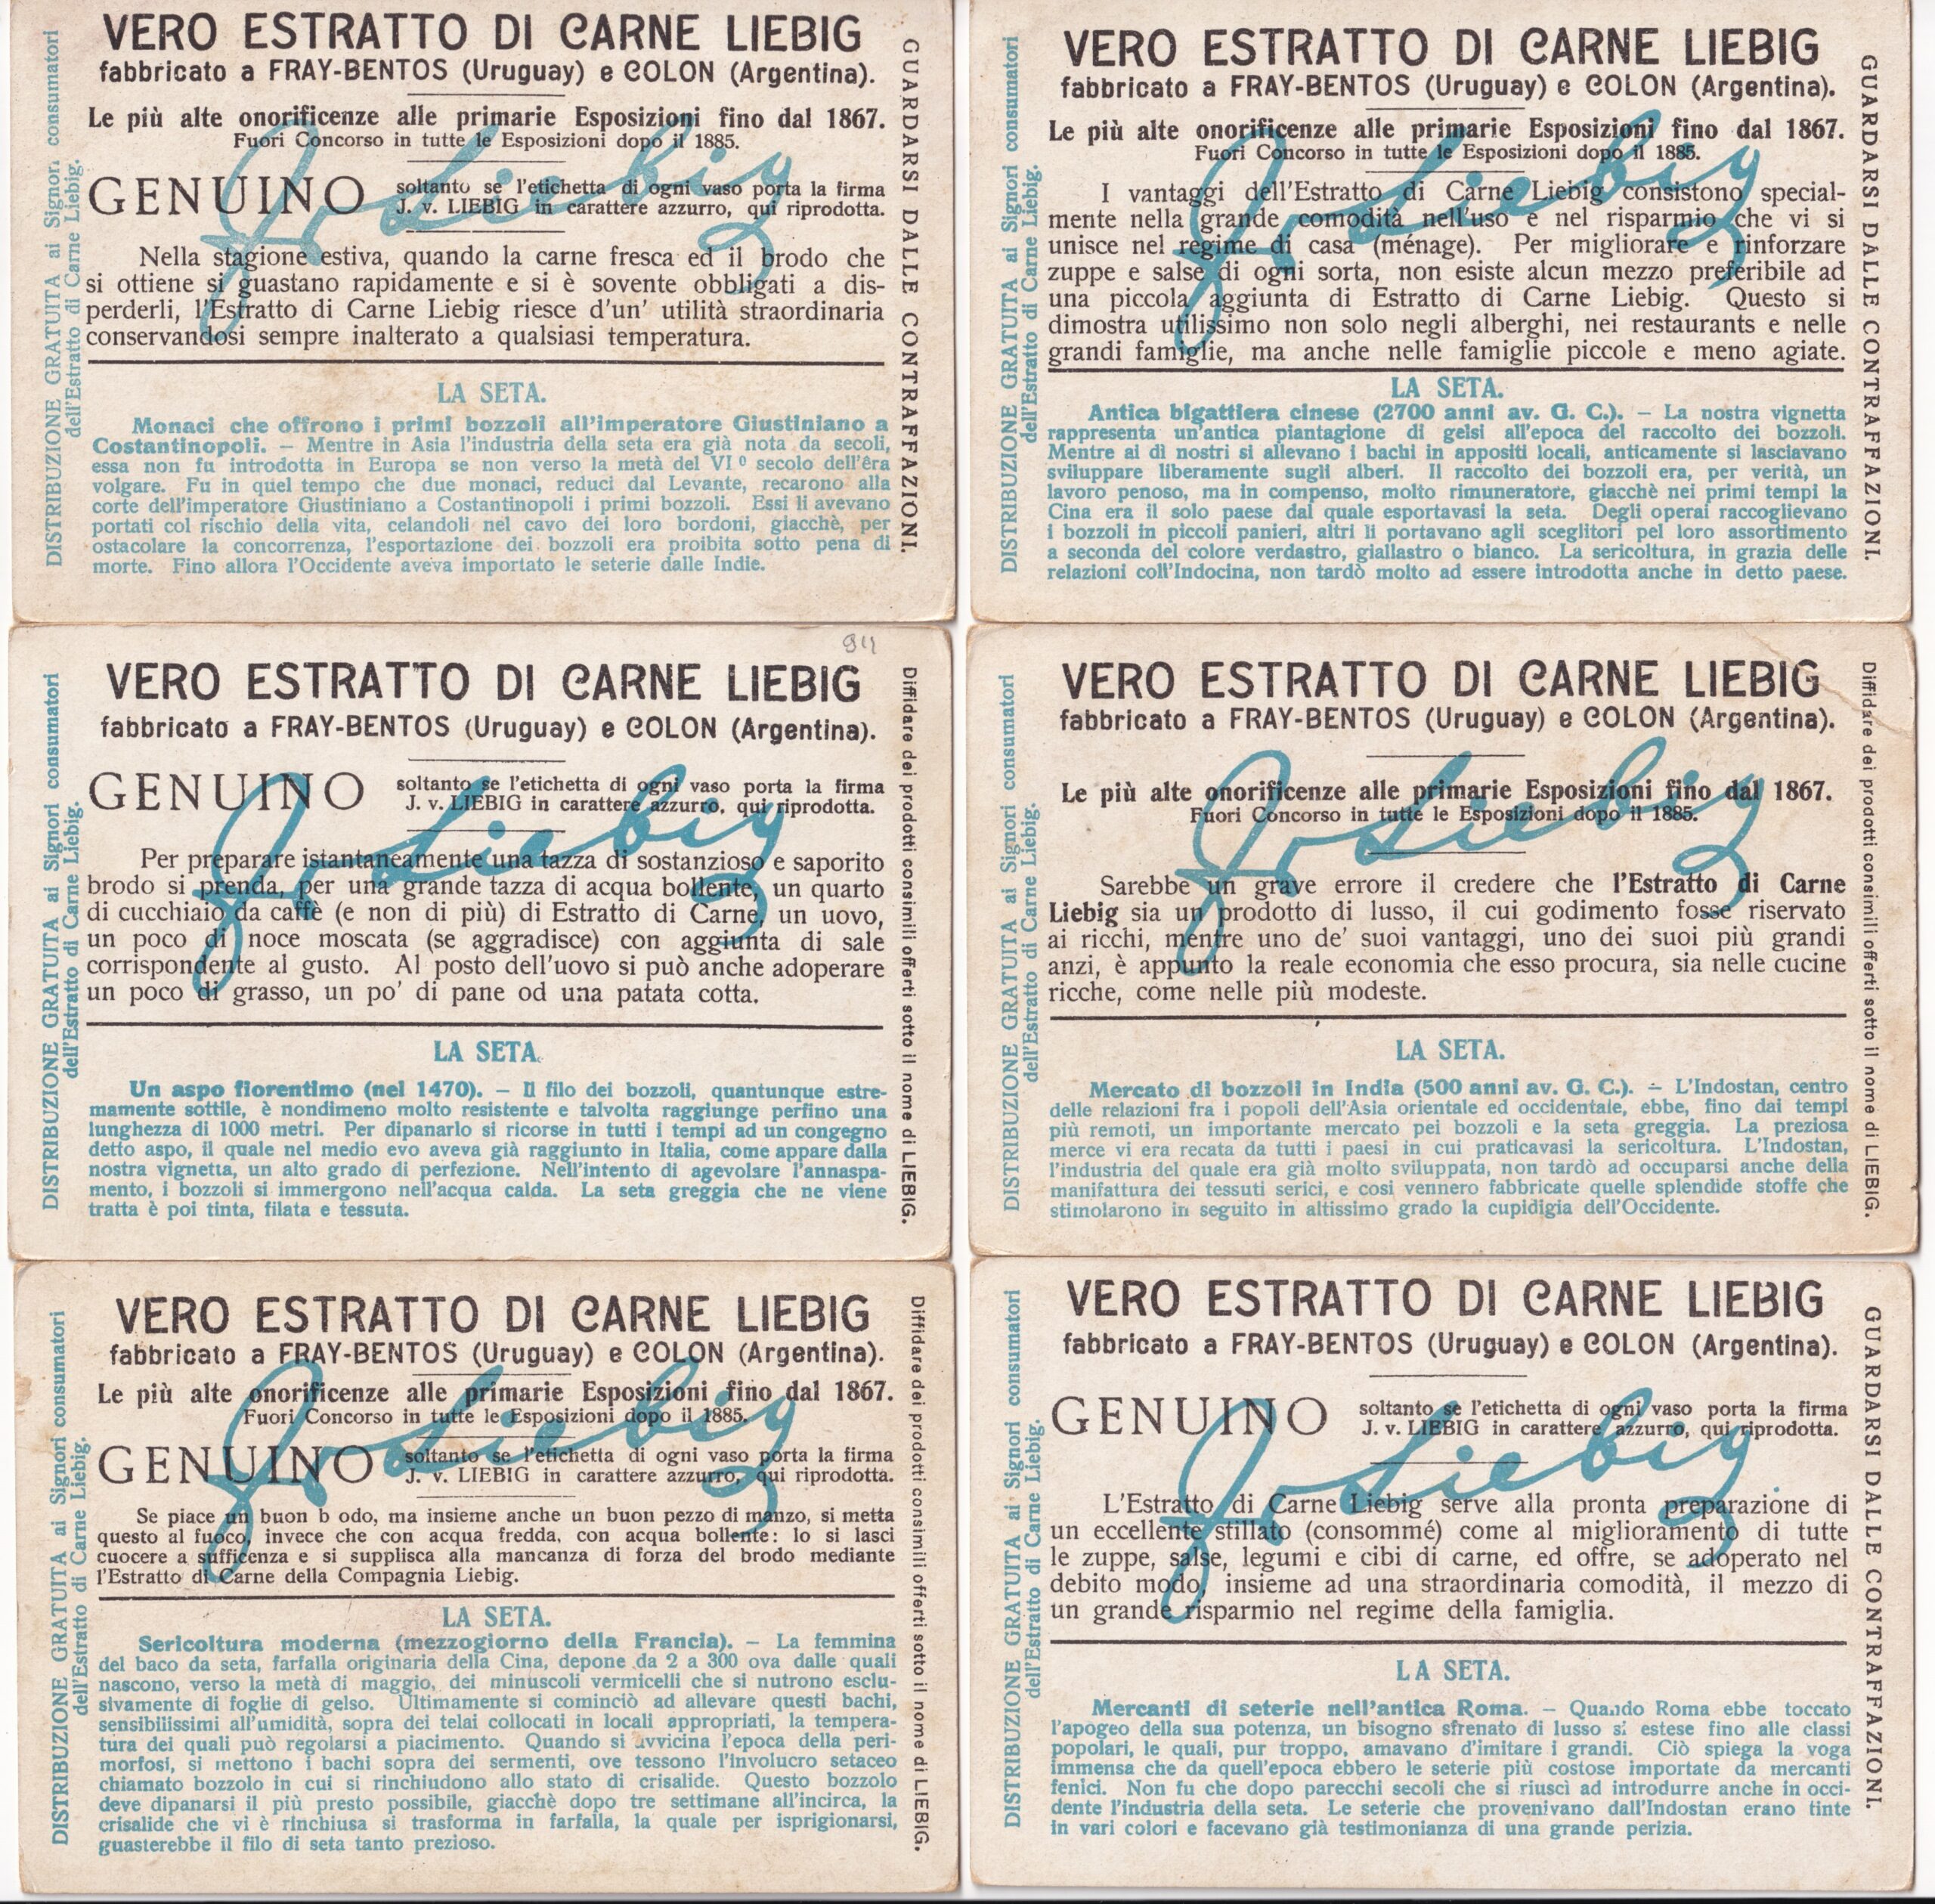 VERO ESTRATTO DI CARNE LIEBIG
fabbricato a FRAY-BENTOS (Uruguay) e COLON (Argentina).
Le più alte onorificenze alle primarie Esposizioni fino dal 1867.
Fuori Concorso in tutte le Esposizioni dopo il 1885.
GENUINO soltanto se l'etichetta di ogni vaso porta la firma
J. v. LIEBIG in carattere azzurro, qui riprodotta.
Nella stagione estiva, quando la carne fresca ed il brodo che
si ottiene si guastano rapidamente e si è sovente obbligati a dis-
perderli, l'Estratto di Carne Liebig riesce d'un' utilità straordinaria
conservandosi sempre inalterato a qualsiasi temperatura.
JvLiebig
LA SETA.
Monaci che offrono i primi bozzoli all'imperatore Giustiniano a
Costantinopoli. — Mentre in Asia l'industria della seta era già nota da secoli,
essa non fu introdotta in Europa se non verso la metà del VIº secolo dell'êra
volgare. Fu in quel tempo che due monaci, reduci dal Levante, recarono alla
corte dell'imperatore Giustiniano a Costantinopoli i primi bozzoli. Essi li avevano
portati col rischio della vita, celandoli nel cavo dei loro bordoni, giacchè, per
ostacolare la concorrenza, l'esportazione dei bozzoli era proibita sotto pena di
morte. Fino allora l'Occidente aveva importato le seterie dalle Indie.
DISTRIBUZIONE GRATUITA ai Signori consumatori
dell'Estratto di Carne Liebig.
GUARDARSI DALLE CONTRAFFAZIONI.
VERO ESTRATTO DI CARNE LIEBIG
fabbricato a FRAY-BENTOS (Uruguay) e COLON (Argentina).
Le più alte onorificenze alle primarie Esposizioni fino dal 1867.
Fuori Concorso in tutte le Esposizioni dopo il 1885.
I vantaggi dell'Estratto di Carne Liebig consistono special-
mente nella grande comodità nell'uso e nel risparmio che vi si
unisce nel regime di casa (ménage). Per migliorare e rinforzare
zuppe e salse di ogni sorta, non esiste alcun mezzo preferibile ad
una piccola aggiunta di Estratto di Carne Liebig. Questo si
dimostra utilissimo non solo negli alberghi, nei restaurants e nelle
grandi famiglie, ma anche nelle famiglie piccole e meno agiate.
JvLiebig
LA SETA.
Antica bigattiera cinese (2700 anni av. G. C.). — La nostra vignetta
rappresenta un'antica piantagione di gelsi all'epoca del raccolto dei bozzoli.
Mentre ai dì nostri si allevano i bachi in appositi locali, anticamente si lasciavano
sviluppare liberamente sugli alberi. Il raccolto dei bozzoli era, per verità, un
lavoro penoso, ma in compenso, molto rimuneratore, giacchè nei primi tempi la
Cina era il solo paese dal quale esportavasi la seta. Degli operai raccoglievano
i bozzoli in piccoli panieri, altri li portavano agli sceglitori pel loro assortimento
a seconda del colore verdastro, giallastro o bianco. La sericoltura, in grazia delle
relazioni coll'Indocina, non tardò molto ad essere introdotta anche in detto paese.
DISTRIBUZIONE GRATUITA ai Signori consumatori
dell'Estratto di Carne Liebig.
GUARDARSI DALLE CONTRAFFAZIONI.
911
VERO ESTRATTO DI CARNE LIEBIG
fabbricato a FRAY-BENTOS (Uruguay) e COLON (Argentina).
GENUINO soltanto se l'etichetta di ogni vaso porta la firma
J. v. LIEBIG in carattere azzurro, qui riprodotta.
Per preparare istantaneamente una tazza di sostanzioso e saporito
brodo si prenda, per una grande tazza di acqua bollente, un quarto
di cucchiaio da caffè (e non di più) di Estratto di Carne, un uovo,
un poco di noce moscata (se aggradisce) con aggiunta di sale
corrispondente al gusto. Al posto dell'uovo si può anche adoperare
un poco di grasso, un po' di pane od una patata cotta.
JvLiebig
LA SETA.
Un aspo fiorentimo (nel 1470). — Il filo dei bozzoli, quantunque estre-
mamente sottile, è nondimeno molto resistente e talvolta raggiunge perfino una
lunghezza di 1000 metri. Per dipanarlo si ricorse in tutti i tempi ad un congegno
detto aspo, il quale nel medio evo aveva già raggiunto in Italia, come appare dalla
nostra vignetta, un alto grado di perfezione. Nell'intento di agevolare l'annaspa-
mento, i bozzoli si immergono nell'acqua calda. La seta greggia che ne viene
tratta è poi tinta, filata e tessuta.
DISTRIBUZIONE GRATUITA ai Signori consumatori
dell'Estratto di Carne Liebig.
Diffidare dei prodotti consimili offerti sotto il nome di LIEBIG.
VERO ESTRATTO DI CARNE LIEBIG
fabbricato a FRAY-BENTOS (Uruguay) e COLON (Argentina).
Le più alte onorificenze alle primarie Esposizioni fino dal 1867.
Fuori Concorso in tutte le Esposizioni dopo il 1885.
Sarebbe un grave errore il credere che l'Estratto di Carne
Liebig sia un prodotto di lusso, il cui godimento fosse riservato
ai ricchi, mentre uno de' suoi vantaggi, uno dei suoi più grandi
anzi, è appunto la reale economia che esso procura, sia nelle cucine
ricche, come nelle più modeste.
JvLiebig
LA SETA.
Mercato di bozzoli in India (500 anni av. G. C.). — L'Indostan, centro
delle relazioni fra i popoli dell'Asia orientale ed occidentale, ebbe, fino dai tempi
più remoti, un importante mercato pei bozzoli e la seta greggia. La preziosa
merce vi era recata da tutti i paesi in cui praticavasi la sericoltura. L'Indostan,
l'industria del quale era già molto sviluppata, non tardò ad occuparsi anche della
manifattura dei tessuti serici, e così vennero fabbricate quelle splendide stoffe che
stimolarono in seguito in altissimo grado la cupidigia dell'Occidente.
DISTRIBUZIONE GRATUITA ai Signori consumatori
dell'Estratto di Carne Liebig.
Diffidare dei prodotti consimili offerti sotto il nome di LIEBIG.
VERO ESTRATTO DI CARNE LIEBIG
fabbricato a FRAY-BENTOS (Uruguay) e COLON (Argentina).
Le più alte onorificenze alle primarie Esposizioni fino dal 1867.
Fuori Concorso in tutte le Esposizioni dopo il 1885.
GENUINO soltanto se l'etichetta di ogni vaso porta la firma
J. v. LIEBIG in carattere azzurro, qui riprodotta.
Se piace un buon b odo, ma insieme anche un buon pezzo di manzo, si metta
questo al fuoco, invece che con acqua fredda, con acqua bollente: lo si lasci
cuocere a sufficenza e si supplisca alla mancanza di forza del brodo mediante
l'Estratto di Carne della Compagnia Liebig.
JvLiebig
LA SETA.
Sericoltura moderna (mezzogiorno della Francia). — La femmina
del baco da seta, farfalla originaria della Cina, depone da 2 a 300 ova dalle quali
nascono, verso la metà di maggio, dei minuscoli vermicelli che si nutrono esclu-
sivamente di foglie di gelso. Ultimamente si cominciò ad allevare questi bachi,
sensibilissimi all'umidità, sopra dei telai collocati in locali appropriati, la tempera-
tura dei quali può regolarsi a piacimento. Quando si avvicina l'epoca della peri-
morfosi, si mettono i bachi sopra dei sermenti, ove tessono l'involucro setaceo
chiamato bozzolo in cui si rinchiudono allo stato di crisalide. Questo bozzolo
deve dipanarsi il più presto possibile, giacchè dopo tre settimane all'incirca, la
crisalide che vi è rinchiusa si trasforma in farfalla, la quale per isprigionarsi,
guasterebbe il filo di seta tanto prezioso.
DISTRIBUZIONE GRATUITA ai Signori consumatori
dell'Estratto di Carne Liebig.
Diffidare dei prodotti consimili offerti sotto il nome di LIEBIG.
VERO ESTRATTO DI CARNE LIEBIG
fabbricato a FRAY-BENTOS (Uruguay) e COLON (Argentina).
GENUINO soltanto se l'etichetta di ogni vaso porta la firma
J. v. LIEBIG in carattere azzurro, qui riprodotta.
L'Estratto di Carne Liebig serve alla pronta preparazione di
un eccellente stillato (consommé) come al miglioramento di tutte
le zuppe, salse, legumi e cibi di carne, ed offre, se adoperato nel
debito modo, insieme ad una straordinaria comodità, il mezzo di
un grande risparmio nel regime della famiglia.
JvLiebig
LA SETA.
Mercanti di seterie nell'antica Roma. — Quando Roma ebbe toccato
l'apogeo della sua potenza, un bisogno sfrenato di lusso si estese fino alle classi
popolari, le quali, pur troppo, amavano d'imitare i grandi. Ciò spiega la voga
immensa che da quell'epoca ebbero le seterie più costose importate da mercanti
fenici. Non fu che dopo parecchi secoli che si riuscì ad introdurre anche in occi-
dente l'industria della seta. Le seterie che provenivano dall'Indostan erano tinte
in vari colori e facevano già testimonianza di una grande perizia.
DISTRIBUZIONE GRATUITA ai Signori consumatori
dell'Estratto di Carne Liebig.
GUARDARSI DALLE CONTRAFFAZIONI.